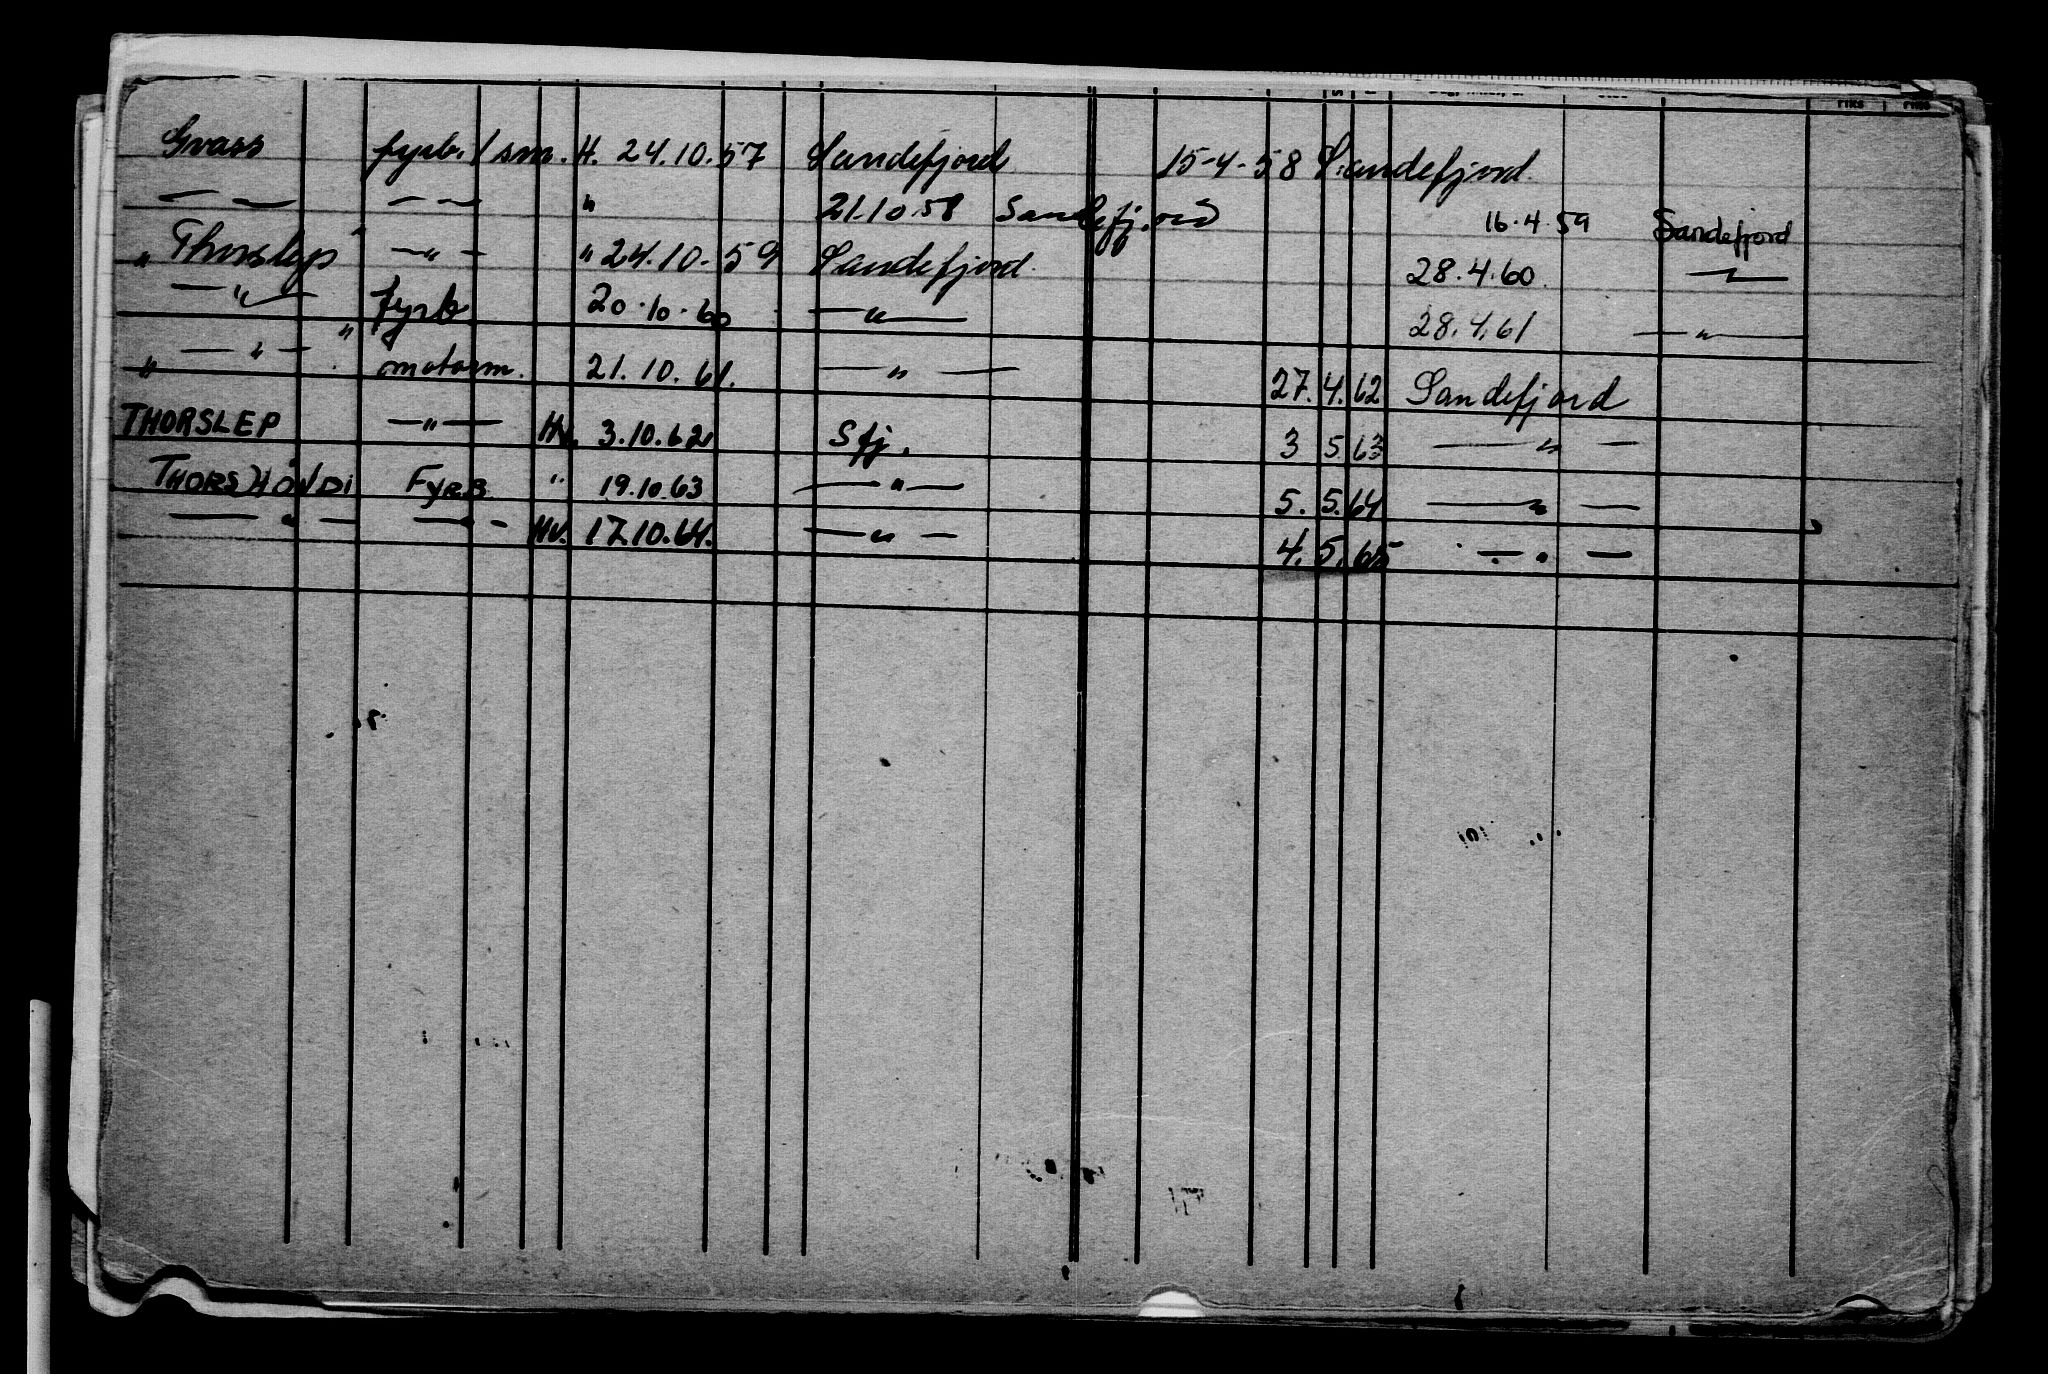 Gvass fyrb. / sm. H. 24.10.57 Sandefjord 15-4-58 Sandefjord
— — — — " 21.10.58 Sandefjord 16.4.59 Sandefjord
" Thorslep " — " — " 24.10.59 Sandefjord 28.4.60 — " —
— " — fyrb 20.10.60 — " — 28.4.61 — " —
" — " — " motorm. 21.10.61. — " — 27.4.62 Sandefjord
THORSLEP — " — Hv. 3.10.62 Sfj. 3 5.63 — " —
THORSHÖVDI FYRB " 19.10.63 — " — 5.5.64 — " —
— " — — " — Hv. 17.10.64. — " — 4.5.65 — " —